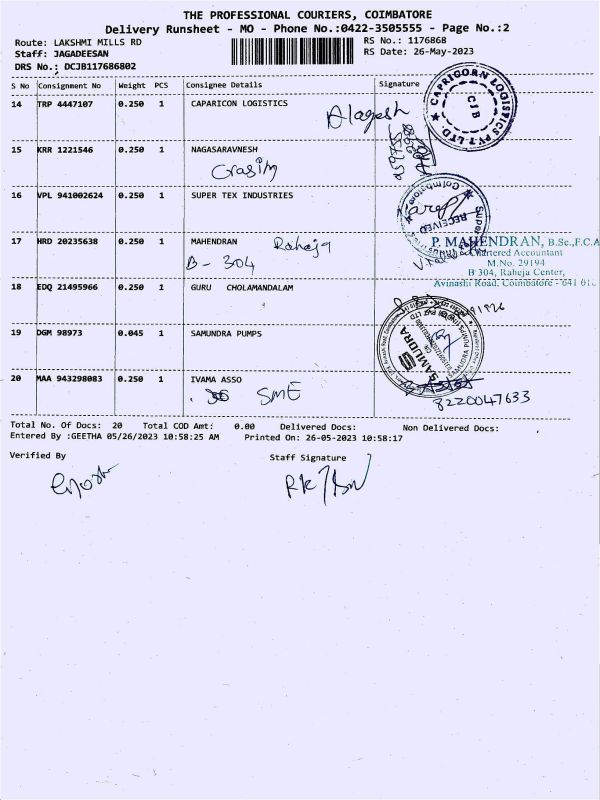 THE PROFESSIONAL COURIERS, COIMBATORE
Delivery Runsheet - MO - Phone No.:0422-3505555 - Page No.:2
Route: LAKSHMI MILLS RD RS No.: 1176868
Staff: JAGADEESAN RS Date: 26-May-2023
DRS No.: DCJB117686802
S No Consignment No Weight PCS Consignee Details Signature
14 TRP 4447107 0.250 1 CAPARICON LOGISTICS
Alagesh
CAPRICORN LOGISTICS PVT LTD
CJB
15 KRR 1221546 0.250 1 NAGASARAVNESH
Grasim
16 VPL 941002624 0.250 1 SUPER TEX INDUSTRIES
Coimbatore
RECEIVED
17 HRD 20235638 0.250 1 MAHENDRAN Raheja
B - 304
P. MAHENDRAN, B.Sc.,F.C.A
Chartered Accountant
M.No. 29194
B 304, Raheja Center,
Avinashi Road, Coimbatore - 641 01
18 EDQ 21495966 0.250 1 GURU CHOLAMANDALAM
19 DGM 98973 0.045 1 SAMUNDRA PUMPS
SAMUDRA
SAMUDRA PUMPS
20 MAA 943298083 0.250 1 IVAMA ASSO
SME
8220047633
Total No. Of Docs: 20 Total COD Amt: 0.00 Delivered Docs: Non Delivered Docs:
Entered By :GEETHA 05/26/2023 10:58:25 AM Printed On: 26-05-2023 10:58:17
Verified By Staff Signature